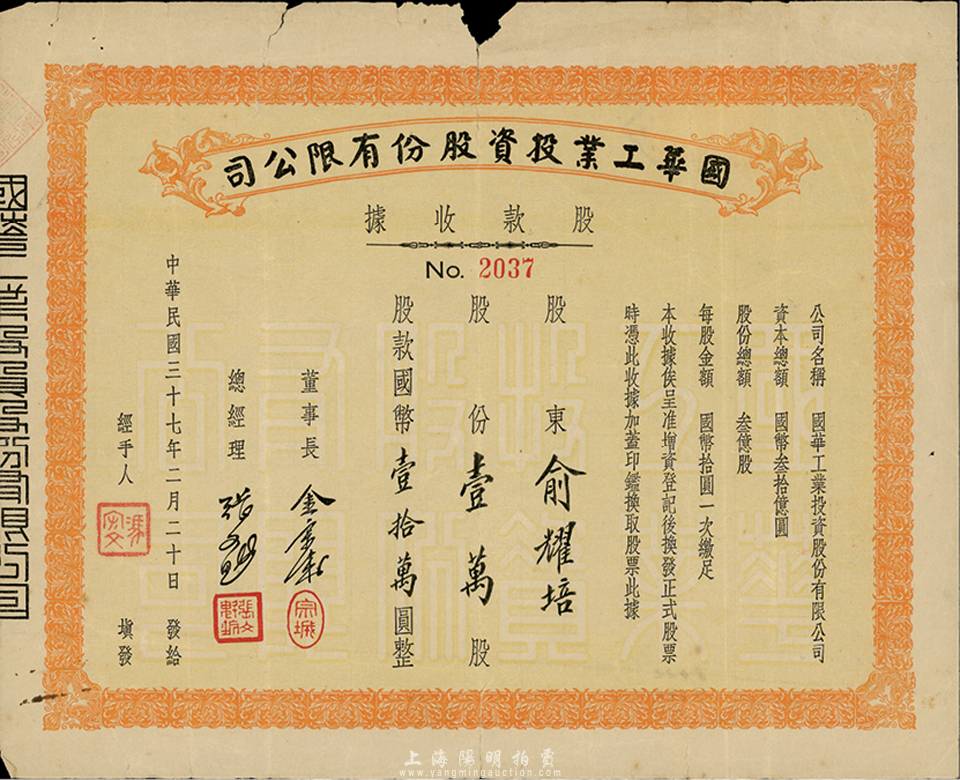 國華工業投資股份有限公司
股款收據
No. 2037
公司名稱 國華工業投資股份有限公司
資本總額 國幣叁拾億圓
股份總額 叁億股
每股金額 國幣拾圓一次繳足
本收據俟呈准增資登記後換發正式股票
時憑此收據加蓋印鑑換取股票此據
股東 俞耀培
股份 壹萬 股
股款國幣 壹拾萬 圓整
董事長
總經理
中華民國三十七年二月二十日 發給
經手人 填發
上海陽明拍賣
www.yangmingauction.com